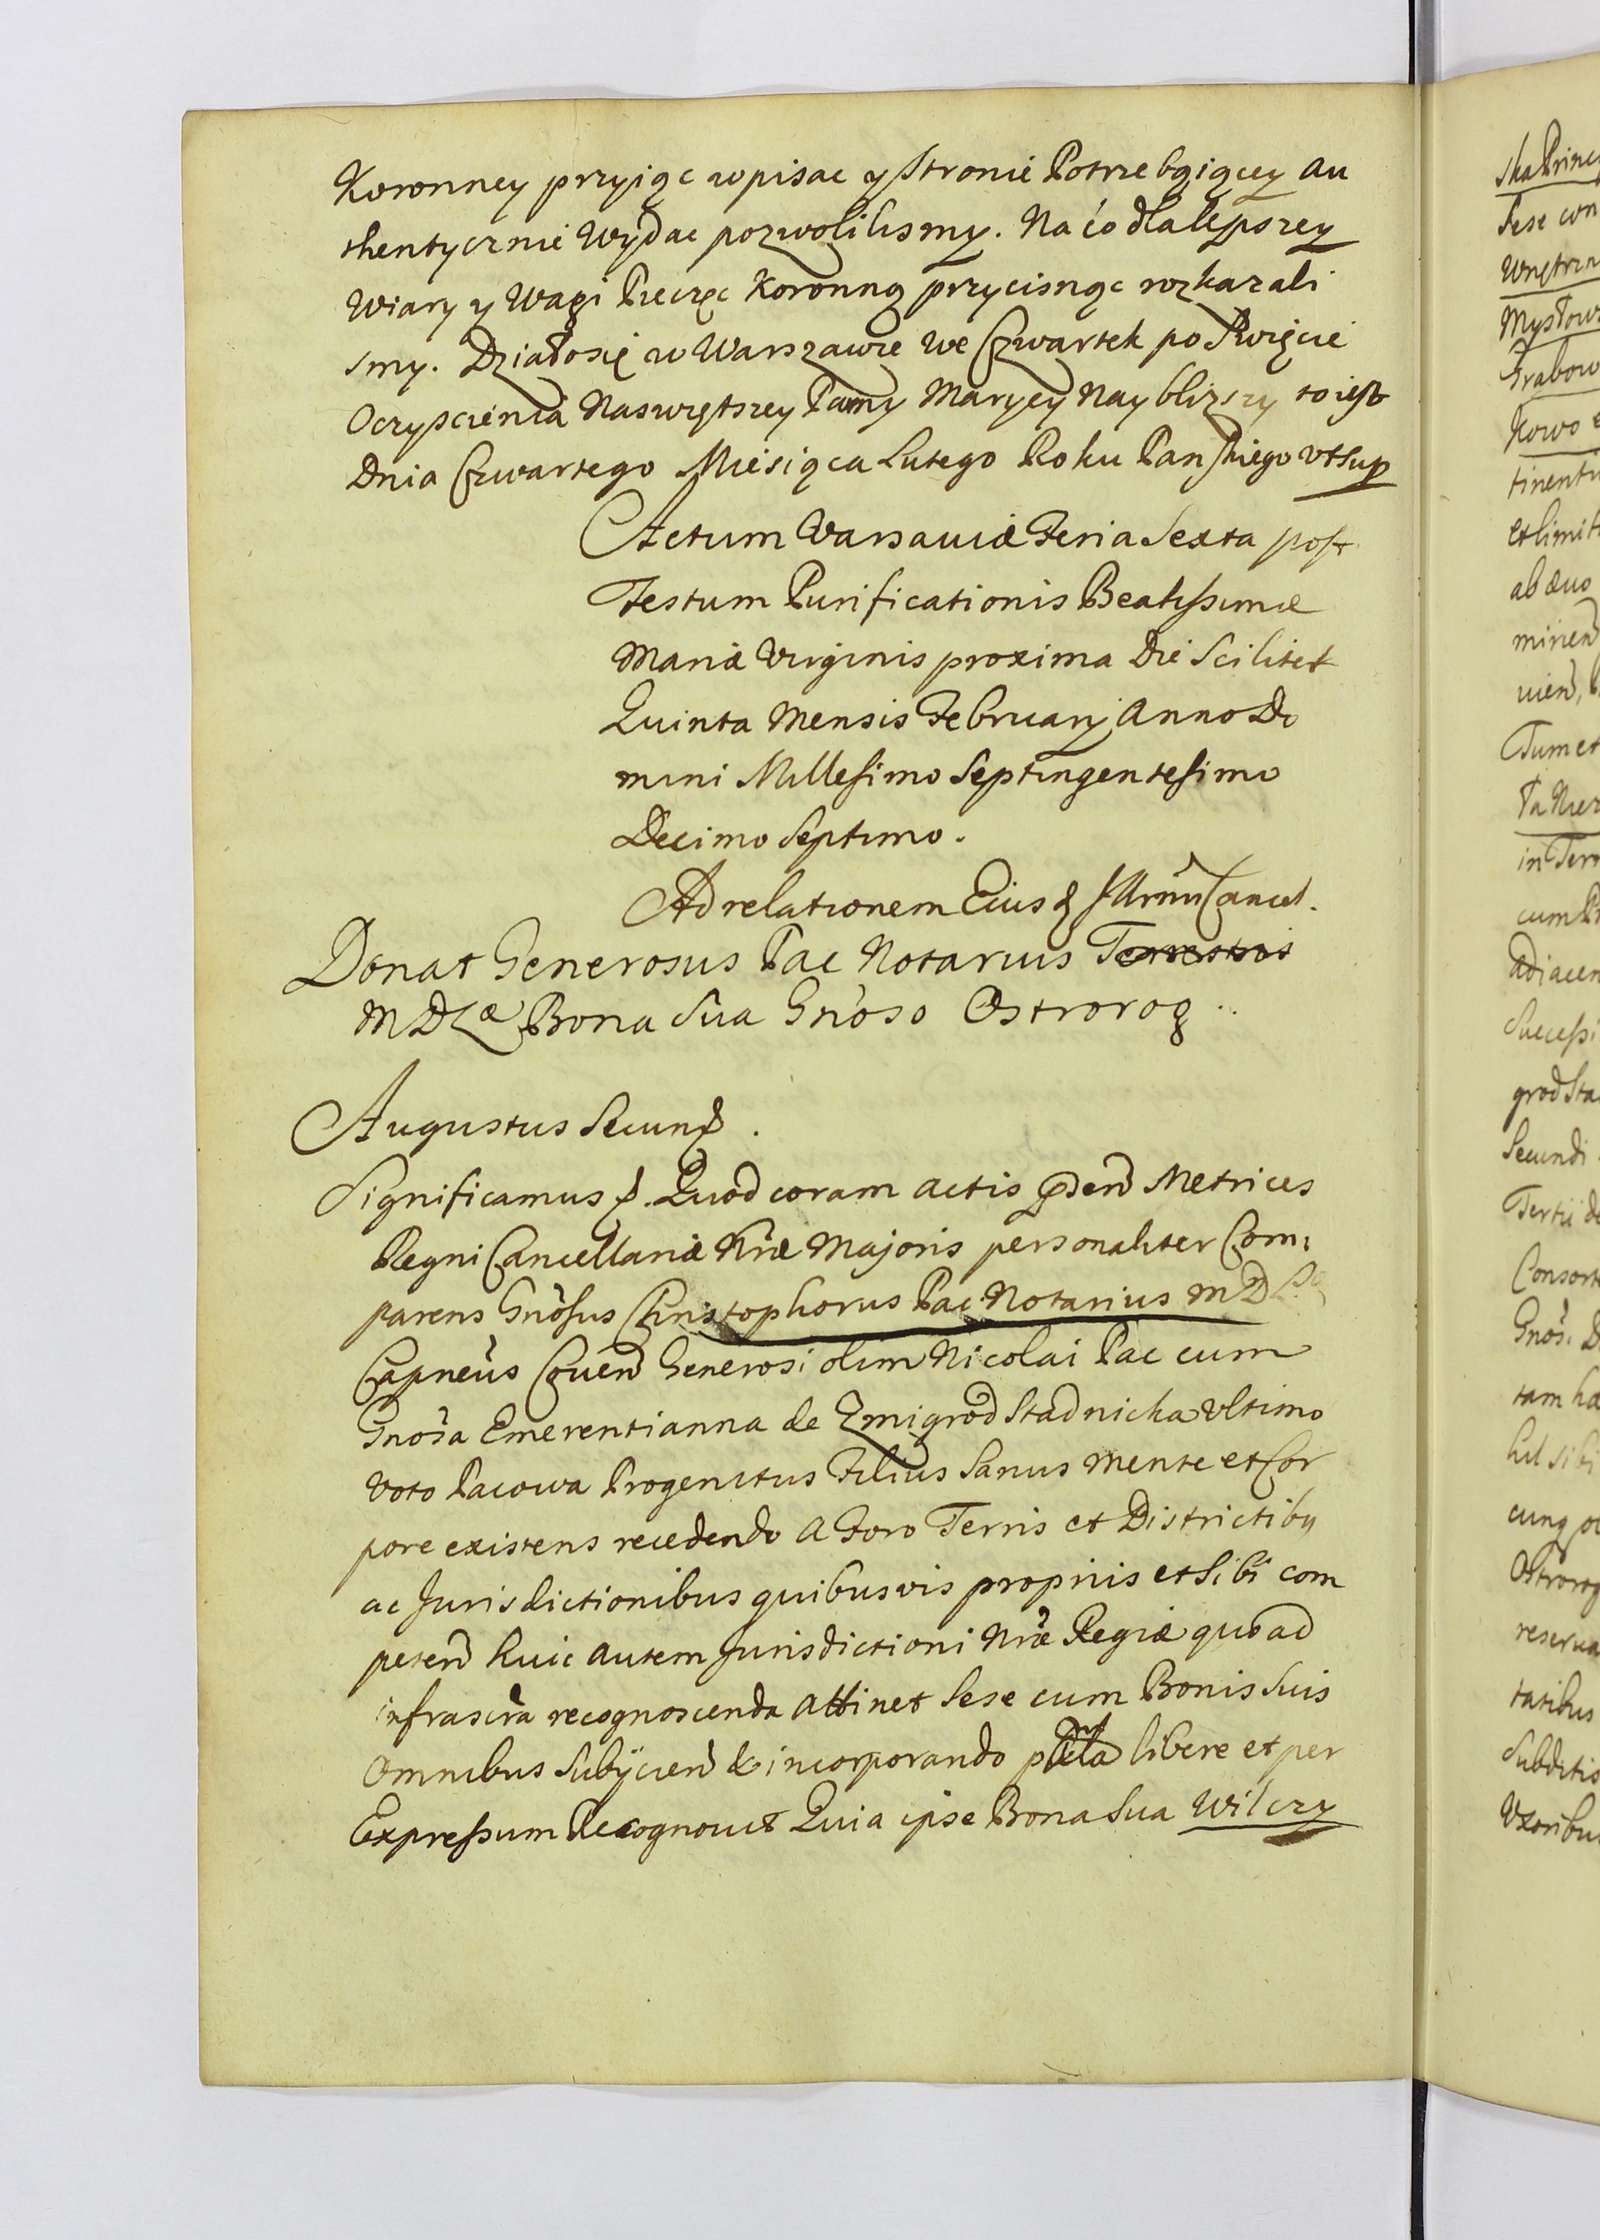 Koronney przyiąc wpisac y stronie Potrzebąiącey au
thentycznie Wydac pozwolilismy. Na co dla lepszey
Wiary y Wagi Pieczęc Koronną przycisnąc rozkazali
smy. Działosię w Warszawie we Czwartek po Swięcie
Oczyscienia Naswiętszey Panny Maryey Nayblizszy to iest
Dnia Czwartego Miesiąca Lutego Roku Panskiego vt sup
Actum Varsaviæ Feria Sexta post
Festum Purificationis Beatissimæ
Mariæ Virginis proxima Die Scilicet
Quinta Mensis Februarij Anno Do
mini Millesimo Septingentesimo
Decimo Septimo.
Ad relationem Eius Illrmi Cancel.
Donat Generosus Pac Notarius Terrestris
M D Læ Bona Sua Gnoso Ostrorog
Augustus Secund.
Significamus Quod coram actis pnden Metrices
Regni Cancellariæ Nræ Majoris personaliter Com:
parens Gnosus Christophorus Pac Notarius M D
Capneus Covend Generosi olim Nicolai Pac cum
Gnosa Emerentianna de Zmigrod Stadnicka Vltimo
voto Pacowa Progenitus Filius Sanus mente et Cor
pore existens recedendo a Foro Terris et Districtibus
ac Jurisdictionibus quibusvis proprijs et Sibi com
peten huic autem Jurisdictioni Nræ Regiæ quo ad
infrascrpta recognoscenda attinet Sese cum Bonis Suis
Omnibus Subÿcien & incorporando libere et per
Expressum Recognovit Quia ipse Bona Sua Wilczy
ska Princ
Sese con
Wnętrzn
Mysłow
Grabow
Kowo
tinenti
et limit
ab æuo
minen
uien,
Tum et
in Terr
cum Pr
adiacen
Successi
grod Sta
Secundi
Tertii de
Consort
Gnos. D
tam ha
hil sibi
cunq
Ostrorog
reserua
tatibus
Subditis
Vxoribu